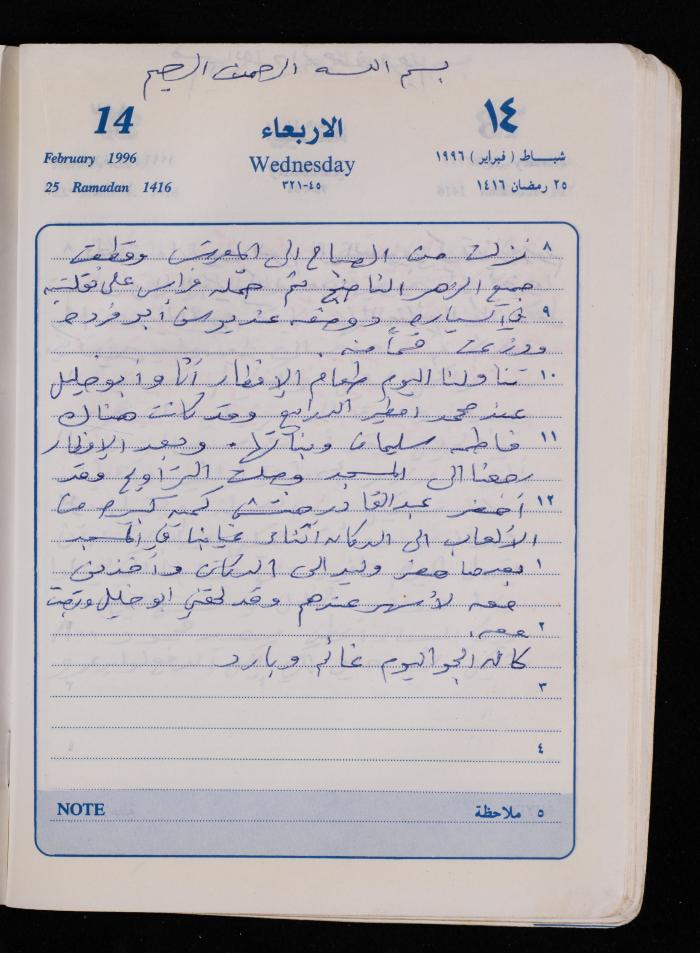 بسم الله الرحمن الرحيم
14 الاربعاء ١٤
February 1996 Wednesday شباط ( فبراير ) ١٩٩٦
25 Ramadan 1416 ٤٥-٣٢١ ٢٥ رمضان ١٤١٦
٨ نزلت من الصباح الى المعرش وقطفت
جميع الزهر الناضج ثم حمله فراس على نقلته
٩ في السياره ووضعه عند يوسف أبو فردة
ووزعت قسماً منه .
١٠ تناولنا اليوم طعام الإفطار أنا وأبو خليل
عند محمد البرابع وقد كانت هناك
١١ فاطمه سليمان وبناتها . وبعد الإفطار
رجعنا الى المسجد وصليت التراويح وقد
١٢ أحضر عبد القادر كميه كبيره من
الألعاب الى الدكان أثناء غيابنا في المسجد
١ بعدها حضر وليد الى الدكان وأخذني
معه لأسهر عندهم وقد لحقني ابو خليل ورجعت
٢ معه .
كان الجو اليوم غائم وبارد
٣
٤
NOTE ٥ ملاحظة